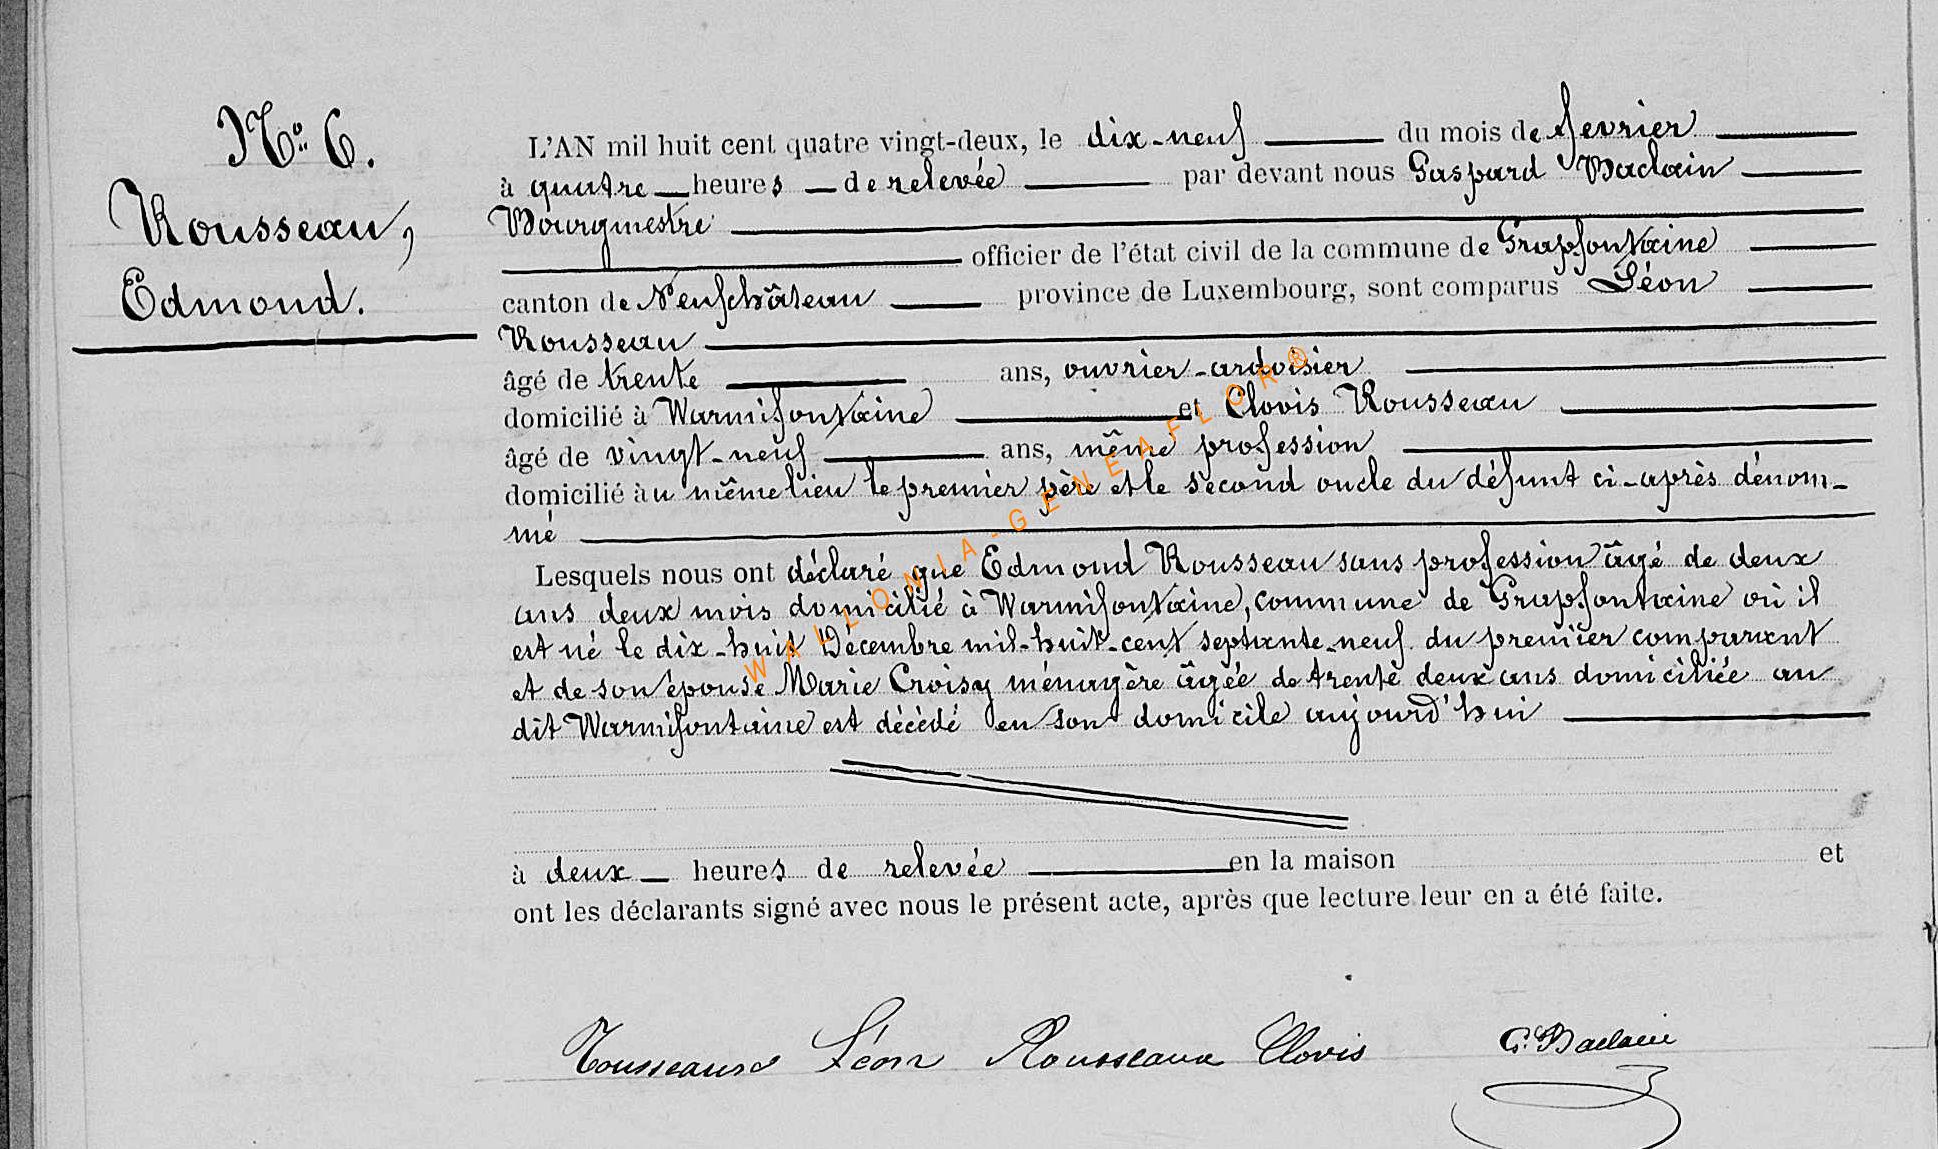 No. 6.
Rousseau,
Edmond.
L'AN mil huit cent quatre vingt-deux, le dix-neuf du mois de fevrier
à quatre heures de relevée par devant nous Gaspard Baclain
Bourgmestre
officier de l'état civil de la commune de Grapfontaine
canton de Neufchâteau province de Luxembourg, sont comparus Léon
Rousseau
âgé de trente ans, ouvrier-ardoisier
domicilié à Warmifontaine et Clovis Rousseau
âgé de vingt-neuf ans, même profession
domicilié au même lieu le premier père et le second oncle du défunt ci-après dénom-
mé
Lesquels nous ont déclaré que Edmond Rousseau sans profession âgé de deux
ans deux mois domicilié à Warmifontaine, commune de Grapfontaine où il
est né le dix-huit Décembre mil-huit-cent septante-neuf du premier comparant
et de son épouse Marie Croisy ménagère âgée de trente deux ans domiciliée au
dit Warmifontaine est décédé en son domicile aujourd'hui
à deux heures de relevée en la maison et
ont les déclarants signé avec nous le présent acte, après que lecture leur en a été faite.
Rousseaux Léon Rousseaux Clovis G. Baclain
WALLONIA-GENEAFLOR®